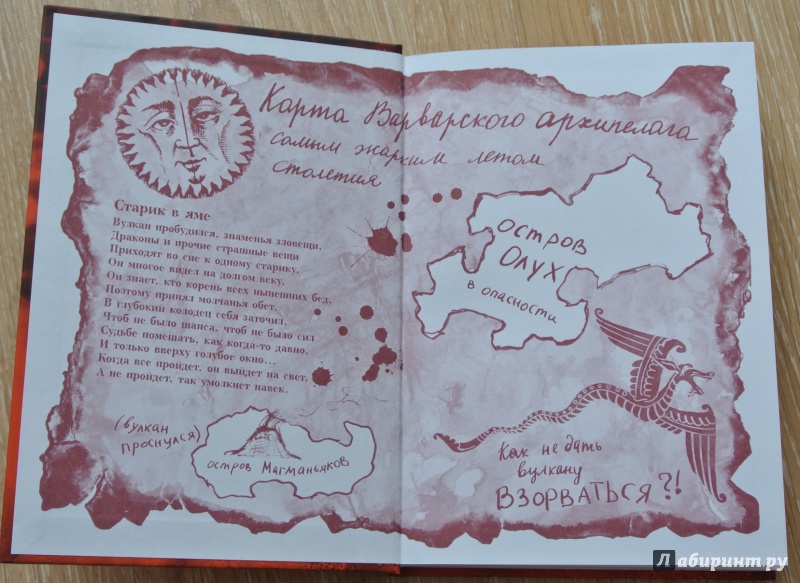 Карта Варварского архипелага
самым жарким летом
столетия
Старик в яме
Вулкан пробудился, знаменья зловещи.
Драконы и прочие страшные вещи
Приходят во сне к одному старику.
Он многое видел на долгом веку.
Он знает, кто корень всех нынешних бед,
Поэтому принял молчанья обет,
В глубокий колодец себя заточил,
Чтоб не было шанса, чтоб не было сил
Судьбе помешать, как когда-то давно.
И только вверху голубое окно...
Когда все пройдет, он выйдет на свет.
А не пройдет, так умолкнет навек.
(вулкан
проснулся)
остров Магманьяков
остров
Олух
в опасности
Как не дать
вулкану
ВЗОРВАТЬСЯ?!
Лабиринт.ру